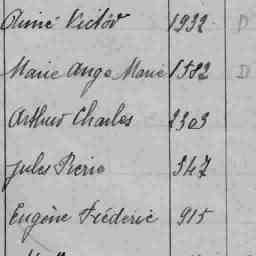 Aimé Victor 1932 D
Marie Ange Marie 1582 D
Arthur Charles 2303
Jules Pierre 347
Eugène Frédéric 915